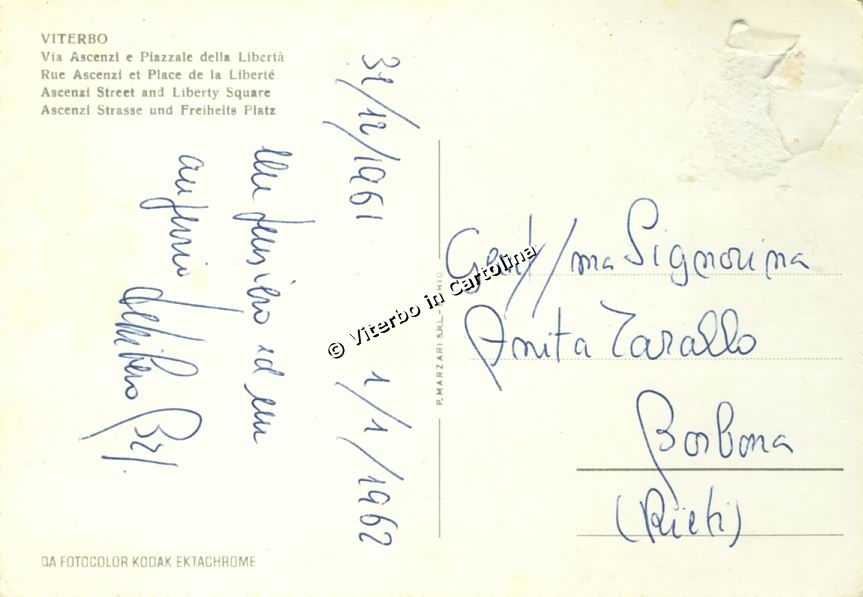 VITERBO
Via Ascenzi e Piazzale della Libertà
Rue Ascenzi et Place de la Liberté
Ascenzi Street and Liberty Square
Ascenzi Strasse und Freiheits Platz
31/12/1961 1/1/1962
un pensiero ed un
augurio
Gent/ma Signorina
Anita Tarallo
Borbona
(Rieti)
P. MARZARI S.R.L. -
© Viterbo in Cartolina
DA FOTOCOLOR KODAK EKTACHROME